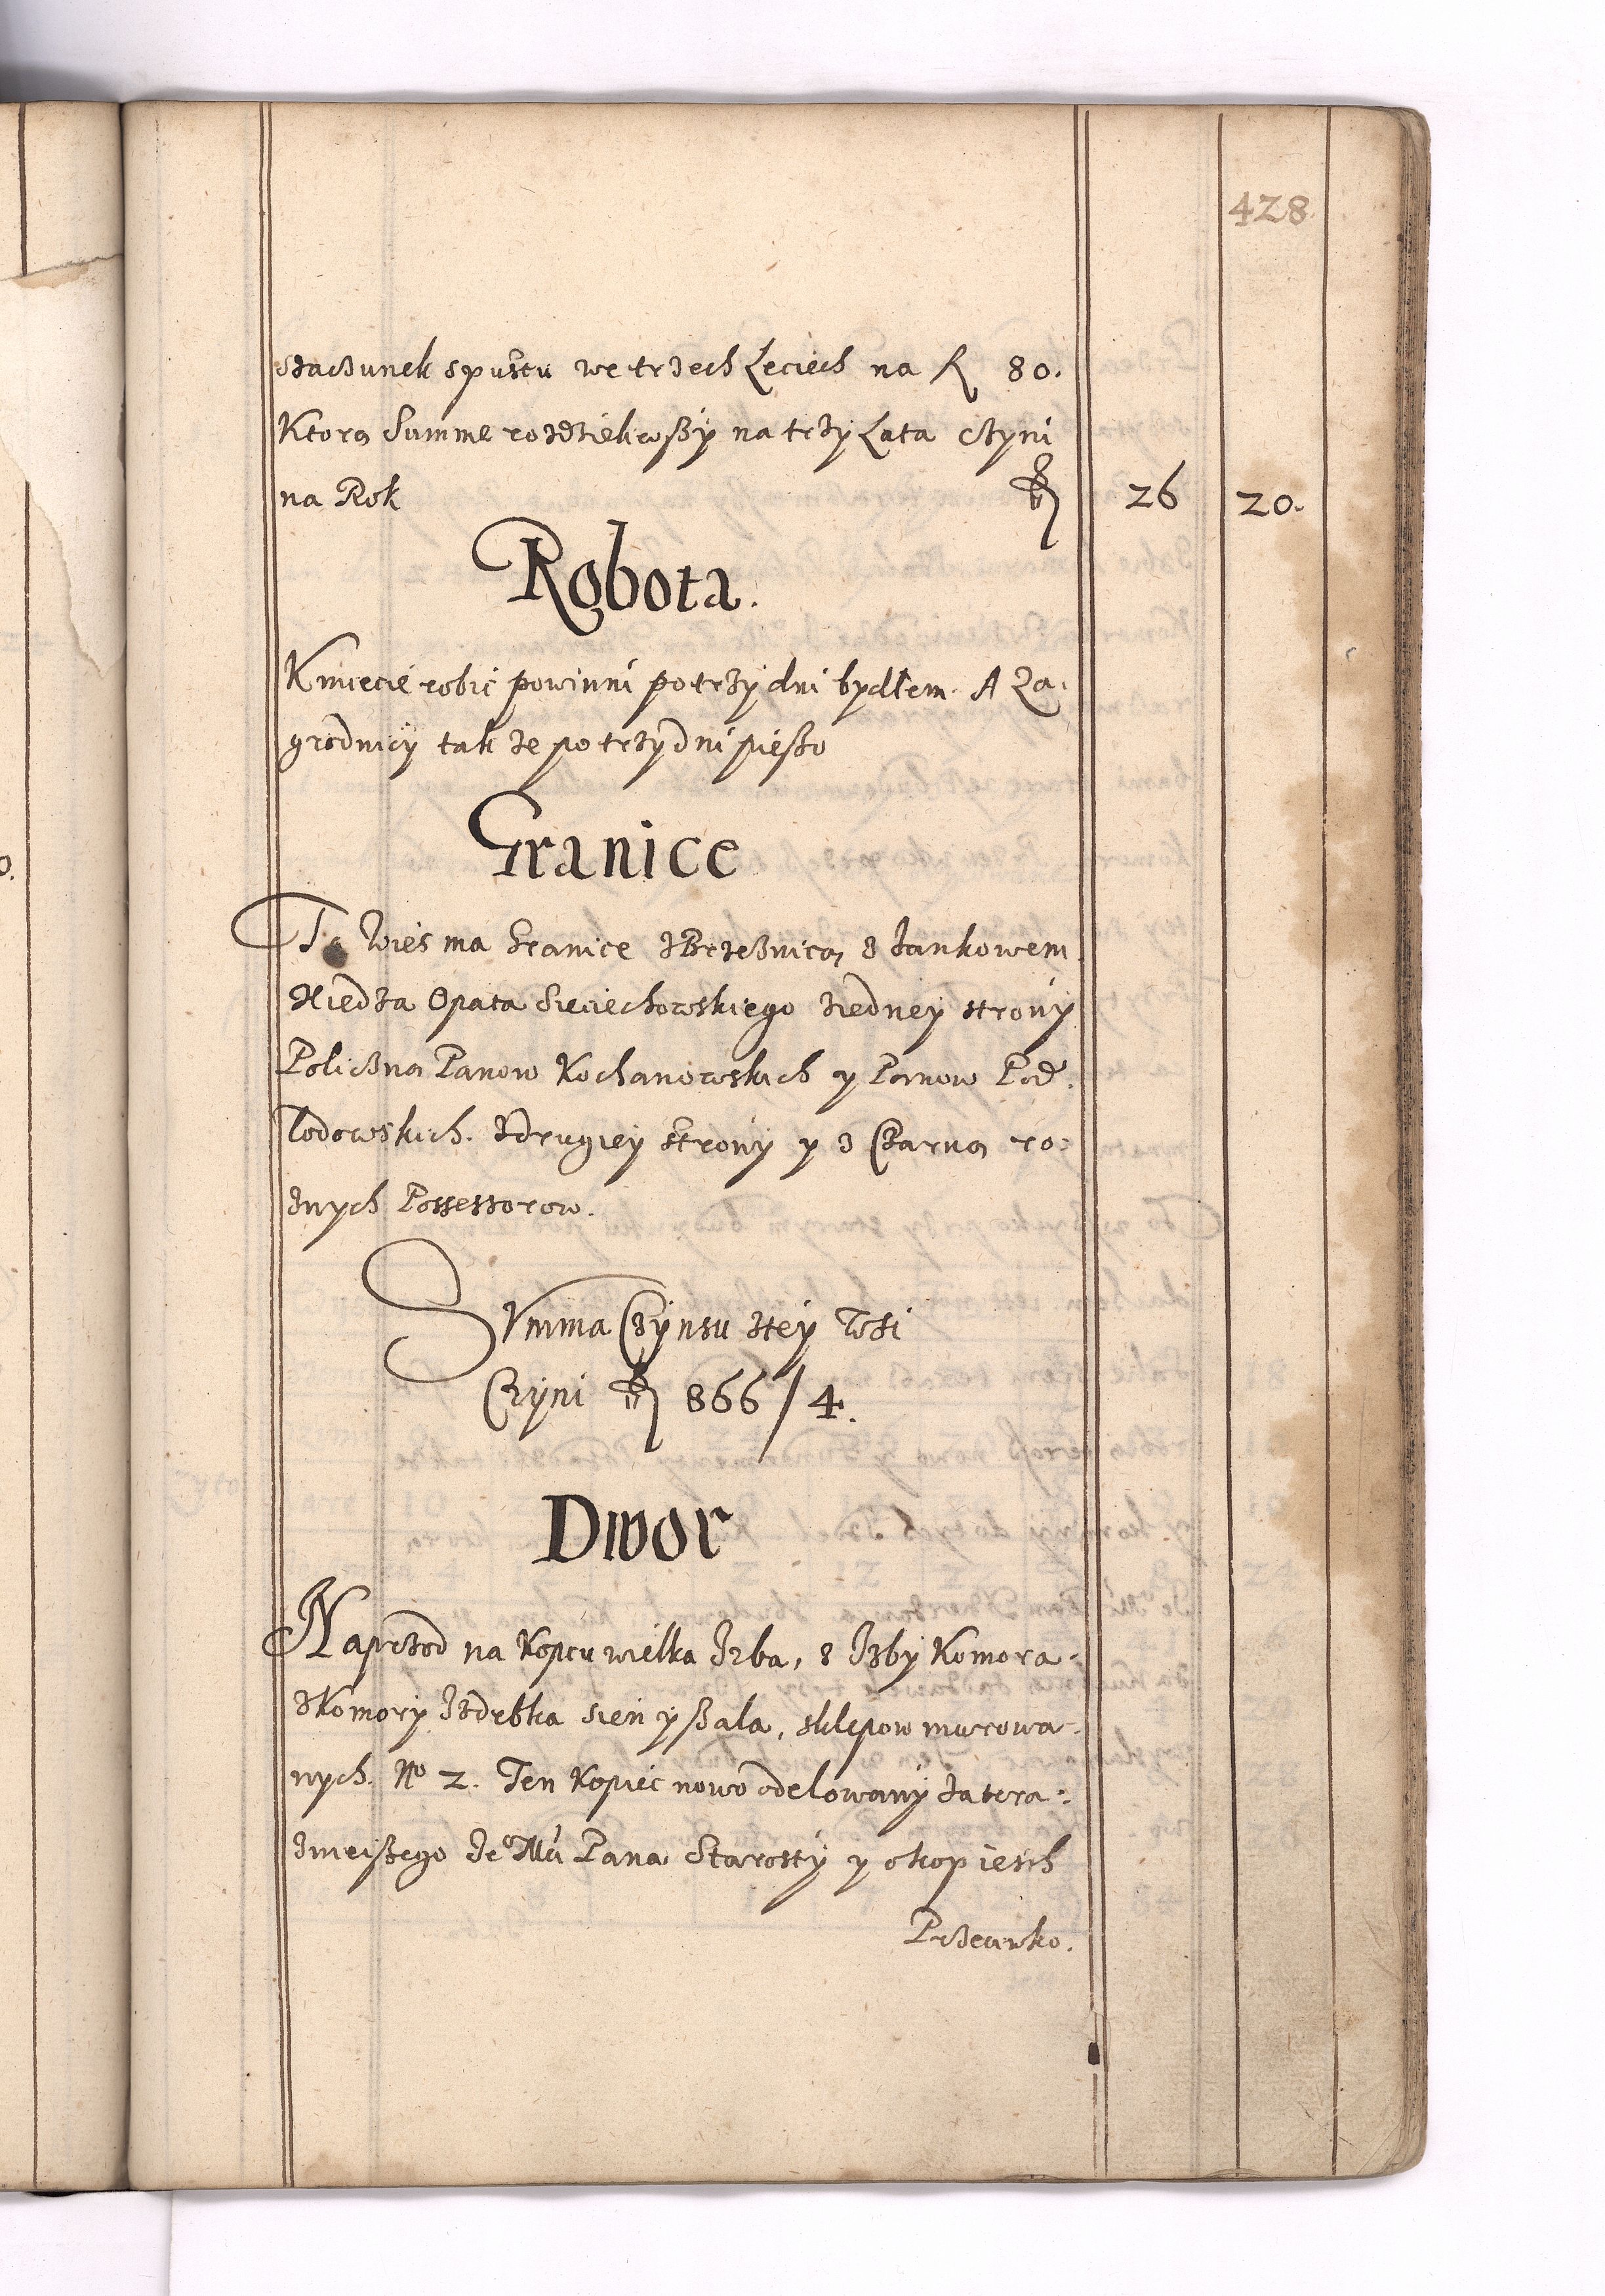 428
szacunek spustu we trzech Leciech na fl 80.
Ktorą Summe rozdzieliwszy na trzy Lata czyni
na Rok fl 26 20.
Robota.
Kmiecie robic powinni po trzy dni bydłem. A Za-
grodnicy tak ze po trzy dni pieszo
Granice
Ta Wies ma Granice z Brzeznicą z Jankowem
Xiedza Opata Sieciechowskiego z iedney strony
Policzną Panow Kochanowskich y Panow Pod-
lodowskich. z drugiey strony y z Czarną ro-
znych Possessorow.
SVmma Czynsu z tey Wsi
Czyni fl 866 / 4.
Dwor
Naprzod na Kopcu wielka Izba, z Izby Komora
z Komory Izdebka sien y szala, sklepow murowa-
nych. No 2. Ten Kopiec nowo odelowany za tera-
znieiszego Je Mci Pana Starosty y okop iest
Przeciwko.